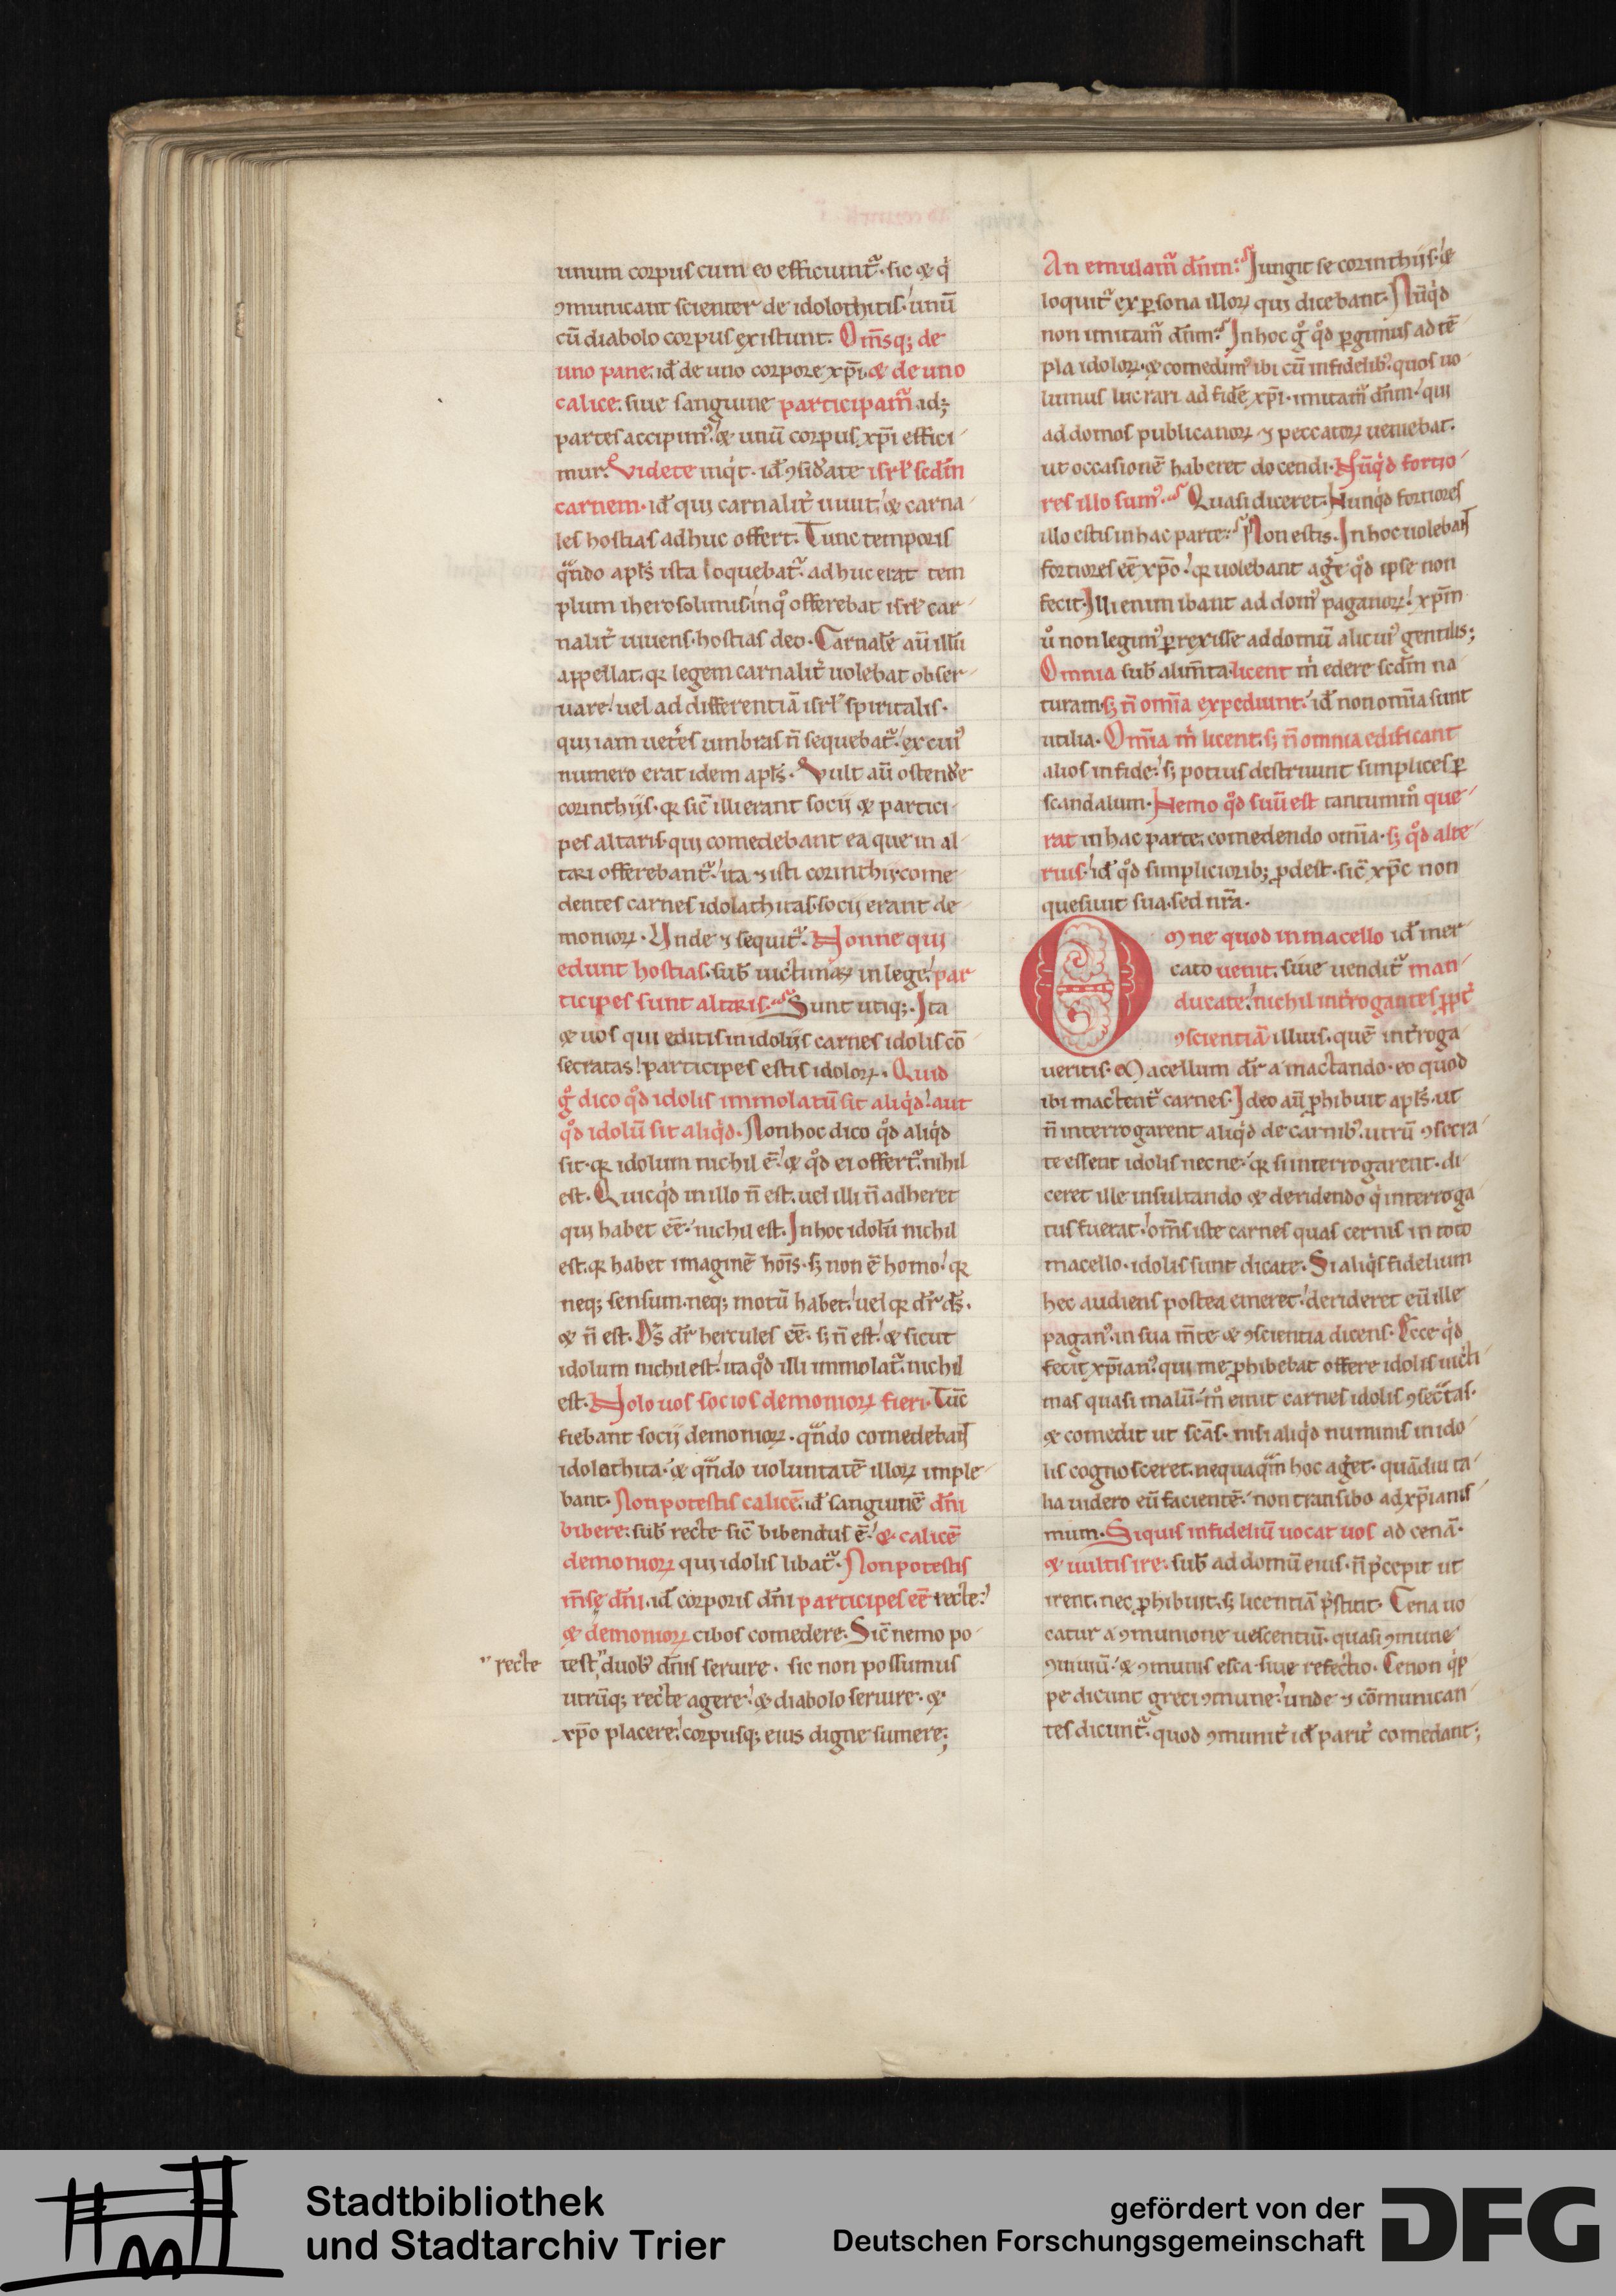 unum corpus cum eo efficiunt᷑· sic ⁊ q̇
ꝯmunicant scienter de idolothitis· unū
cū diabolo corpus existunt. Om̄sq; de
uno pane· id̄ de uno corpore xp̄i· & de uno
calice· siue sanguine participam᷑ adꝫ
partes accipim᷒· & unū corpus xp̄i effici
mur. Videte inq̇t· id̄ ꝯsid̾ate isrł scd̄m
carnem· id̄ qui carnalit̾ uiuit· & carna
les hostias adhuc offert. Tunc temporis
qn̄do apl̄s ista loquebat᷑· adhuc erat tem
plum iherosolimis inq° offerebat isrł car
nalit̾ uiuens· hostias deo. Carnalē aū illū
appellat· qꝛ legem carnalit̾ uolebat obser
uare· uel ad differentiā isrł spiritalis·
qui iam uet̾es umbras n̄ sequebat᷑· ex cui᷒
numero erat idem apl̄s· Vult aū ostend̾e
corinthijs· qꝛ sic̄ illi erant socij & partici
pes altaris· qui comedebant ea que in al
tari offerebant᷑· ita ⁊ isti corinthij come
dentes carnes idolathitas· socij erant de
monioꝝ· Unde ⁊ sequit᷑· Nonne qui
edunt hostias· sub̄ uictimaꝝ in lege· par
ticipes sunt altaris. Sunt utiq;· Ita
& uos qui editis in idolijs carnes idolis cō
secratas· participes estis idoloꝝ· Quid
g° dico qd̊ idolis immolatū sit aliq̇d· aut
qd̊ idolū sit aliq̇d· Non hoc dico qd̊ aliq̇d
sit· qꝛ idolum nichil ē· & qd̊ ei offert᷑· nihil
est. Quicq̇d in illo n̄ est· uel illi n̄ adheret
qui habet eē· nichil est. In hoc idolū nichil
est· qꝛ habet imaginē hoīs· sꝫ non ē homo· qꝛ
neq; sensum· neq; motū habet· uel qꝛ dr̄ ds̄.
& n̄ est. Ds̄ dr̄ hercules eē· sꝫ n̄ est· & sicut
idolum nichil est· ita qd̊ illi immolat᷑· nichil
est. Nolo uos socios demonioꝝ fieri. Tūc
fiebant socij demonioꝝ· qn̄do comedebant
idolothita· & qn̄do uoluntatē illoꝝ imple
bant. Non potestis calicē· id̄ sanguinē dn̄i
bibere· sub̄ recte sic̄ bibendus ē· & calicē
demonioꝝ qui idolis libat᷑. Non potestis
m̄se dn̄i· id̄ corporis dn̄i participes eē recte·
& demonioꝝ cibos comedere. Sic̄ nemo po
recte
test duob᷒ dn̄is seruire· sic non possumus
utrūq; recte agere· & diabolo seruire· &
xp̄o placere· corpusq; eius digne sumere;
An emulam᷑ dn̄m. Iungit se corinthijs· &
loquit᷑ ex ꝑsona illoꝝ qui dicebant. Nūq̇d
non imitam᷑ dn̄m. In hoc g° qd̊ ꝑgimus ad tē
pla idoloꝝ· & comedim᷒ ibi cū infidelib᷒· quos uo
lumus lucrari ad fidē xp̄i· imitam᷑ dn̄m· qui
ad domos publicanoꝝ ⁊ peccatoꝝ ueniebat.
ut occasionē haberet docendi· Nūq̇d fortio
res illo sum᷒. Quasi diceret· Nunq̇d fortiores
illo estis in hac parte. Non estis. In hoc uolebant
fortiores eē xp̄o· qꝛ uolebant ag̾e qd̊ ipse non
fecit· Illi enim ibant ad dom᷒ paganoꝝ· xp̄m
u° non legim᷒ ꝑrexisse ad domū alicui᷒ gentilis;
Omnia sub̄ alim̄ta licent ṁ edere scd̄m na
turam· sꝫ n̄ om̄ia expediunt· id̄ non om̄ia sunt
utilia. Om̄ia ṁ licent· sꝫ n̄ omnia edificant
alios in fide· sꝫ potius destruunt simplices ꝑ
scandalum. Nemo qd̊ suū est tantummō que
rat in hac parte· comedendo om̄ia· sꝫ qd̊ alte
rius· id̄ qd̊ simpliciorib; ꝓdest· sic̄ xp̄c non
quesiuit sua· sed nr̄a·
Omne quod in macello id̄ mer
cato uenit· siue uendit᷑ man
ducate· nichil int̾rogantes ꝓpt̾
ꝯscientiā illius· quē int̾roga
ueritis. Macellum dr̄ a mactando· eo quod
ibi mactent᷑ carnes· Ideo aū ꝓhibuit apl̄s· ut
n̄ interrogarent aliq̇d de carnib᷒· utrū ꝯsecra
te essent idolis necne· qꝛ si interrogarent· di
ceret ille insultando & deridendo q̇ interroga
tus fuerat· om̄s iste carnes quas cernis in toto
macello· idolis sunt dicate. Si aliq̇s fidelium
hec audiens postea emeret· derideret eū ille
pagan᷒· in sua m̄te & ꝯscientia dicens. Ecce q̇d
fecit xp̄ian᷒· qui me ꝓhibebat offere idolis uicti
mas quasi malū· m° emit carnes idolis ꝯsec᷑tas·
& comedit ut sc̄as· nisi aliq̇d numinis in ido
lis cognosceret· nequaq̄m hoc ag̾et· quādiu ta
lia uidero eū facientē· non transibo ad xp̄ianis
mum. Siquis infideliū uocat uos ad cenā·
& uultis ire· sub̄ ad domū eius· n̄ p̾cepit ut
irent· nec ꝓhibuit· sꝫ licentiā p̾stitit. Cena uo
catur a ꝯmunione uescentiū· quasi ꝯmune
ꝯuiuiū· & ꝯmunis esca· siue refectio. Cenon q̇p
pe dicunt greci ꝯmune· unde ⁊ cōmunican
tes dicunt᷑· quod ꝯmunit̾ id̄ parit̾ comedant;
Stadtbibliothek
und Stadtarchiv Trier
gefördert von der
Deutschen Forschungsgemeinschaft
DFG